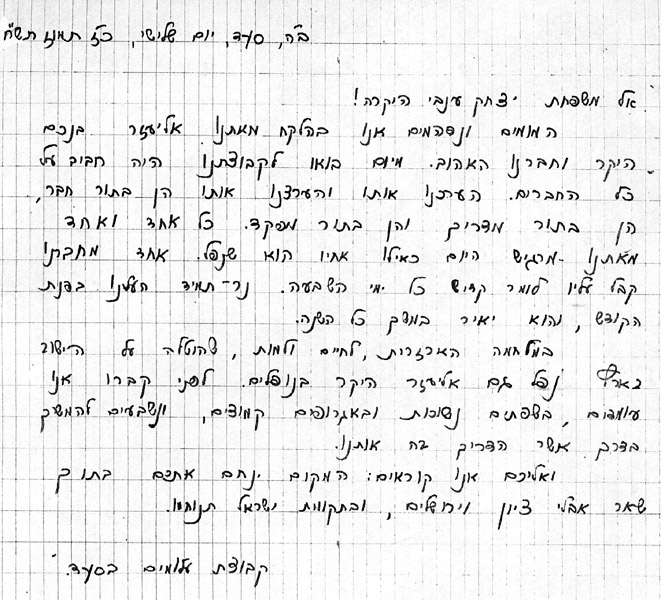 ב"ה, סעד, יום שלישי, כ"ז תמוז תש"ח
אל משפחת יצחק ענבי היקרה!
המומים ונפעמים אנו בהלקח מאתנו אליעזר בנכם
היקר וחברנו האהוב. מיום בואו לקבוצתנו היה חביב על
כל החברים. הערכנו אותו והערצנו אותו הן בתור חבר,
הן בתור מדריך והן בתור מפקד. כל אחד ואחד
מאתנו מרגיש היום כאילו אחיו הוא שנפל. אחד מחברנו
קבל עליו לומר קדיש כל ימי השבעה. נר-תמיד העלנו בפנת
הקודש, והוא יאיר במשך כל השנה.
במלחמה האכזרית, לחיים ולמות, שהוטלה על הישוב
בארץ נפל גם אליעזר היקר בנופלים. לפני קברו אנו
עומדים, בשפתים נשוכות ובאגרופים קמוצים, ונשבעים להמשיך
בדרך אשר הדריך בה אותנו.
ואליכם אנו קוראים: המקום ינחם אתכם בתוך
שאר אבלי ציון וירושלים, ובתקומת ישראל תנוחמו.
קבוצת עלומים בסעד.